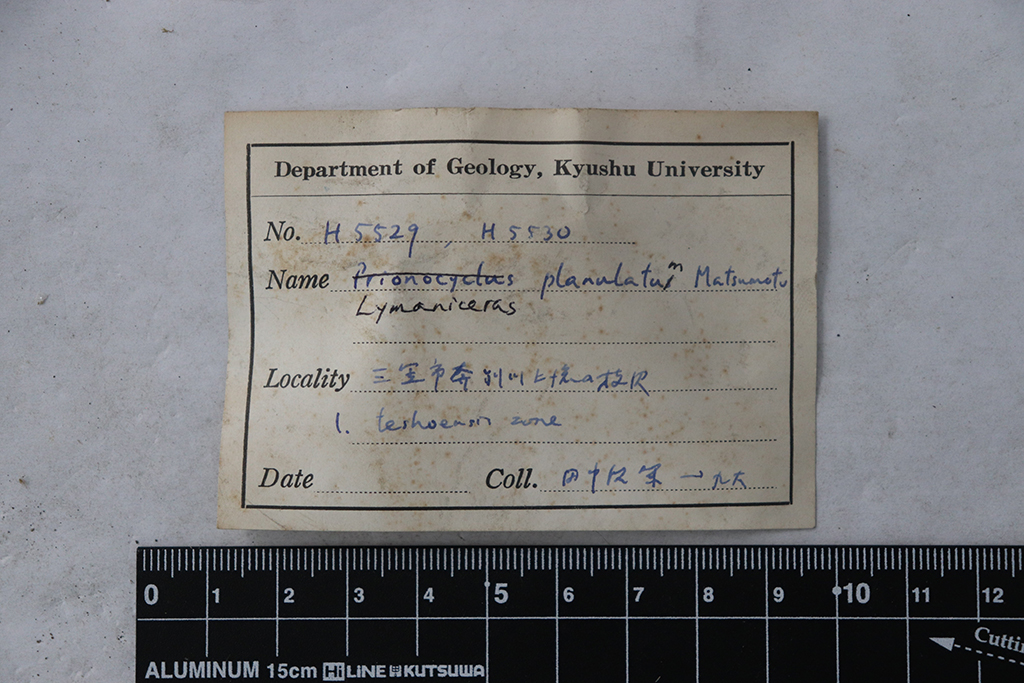 Department of Geology, Kyushu University
No. H5529, H5530
Name Prionocyclus planulatum Matsumoto
Lymaniceras
Locality 三笠市奔別川上流の枝沢
I. teshioensis zone
Date Coll. 田中 一九六
0 1 2 3 4 5 6 7 8 9 10 11 12
ALUMINUM 15cm Hi LINE KUTSUWA